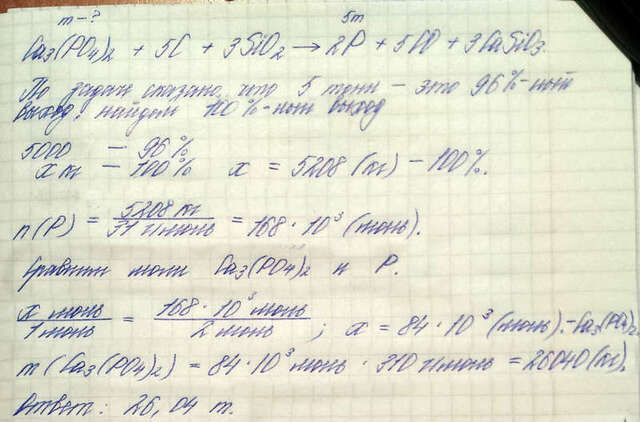 m-?
5т
Ca₃(PO₄)₂ + 5C + 3SiO₂ → 2P + 5CO + 3CaSiO₃
По задаче сказано, что 5 тонн - это 96%-ный
выход, найдем 100%-ный выход
5000 - 96%
x кг - 100% x = 5208 (кг) - 100%.
n(P) = 5208 кг / 31 г/моль = 168 · 10³ (моль).
Сравним моли Ca₃(PO₄)₂ и P.
x моль / 1 моль = 168 · 10³ моль / 2 моль ; x = 84 · 10³ (моль). - Ca₃(PO₄)₂
m (Ca₃(PO₄)₂) = 84 · 10³ моль · 310 г/моль = 26040 (кг).
Ответ: 26,04 т.